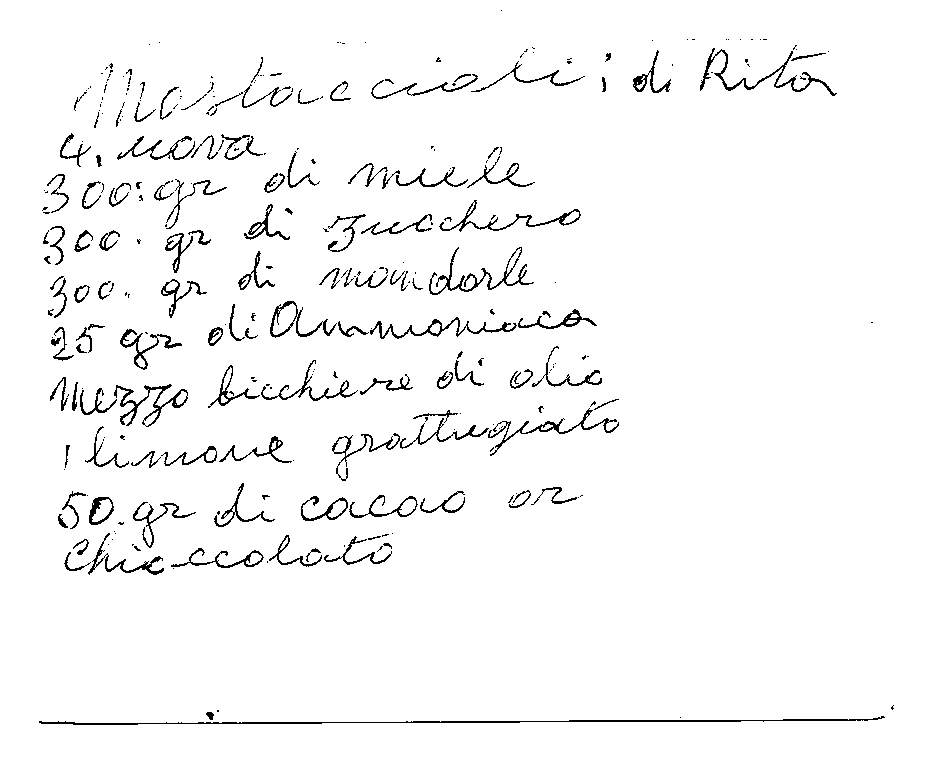 Mostaccioli; di Rita
4. uova
300: gr di miele
300. gr di zucchero
300. gr di mandorle
25 gr di Ammoniaca
Mezzo bicchiere di olio
1 limone grattugiato
50. gr di cacao or
Chioccolato